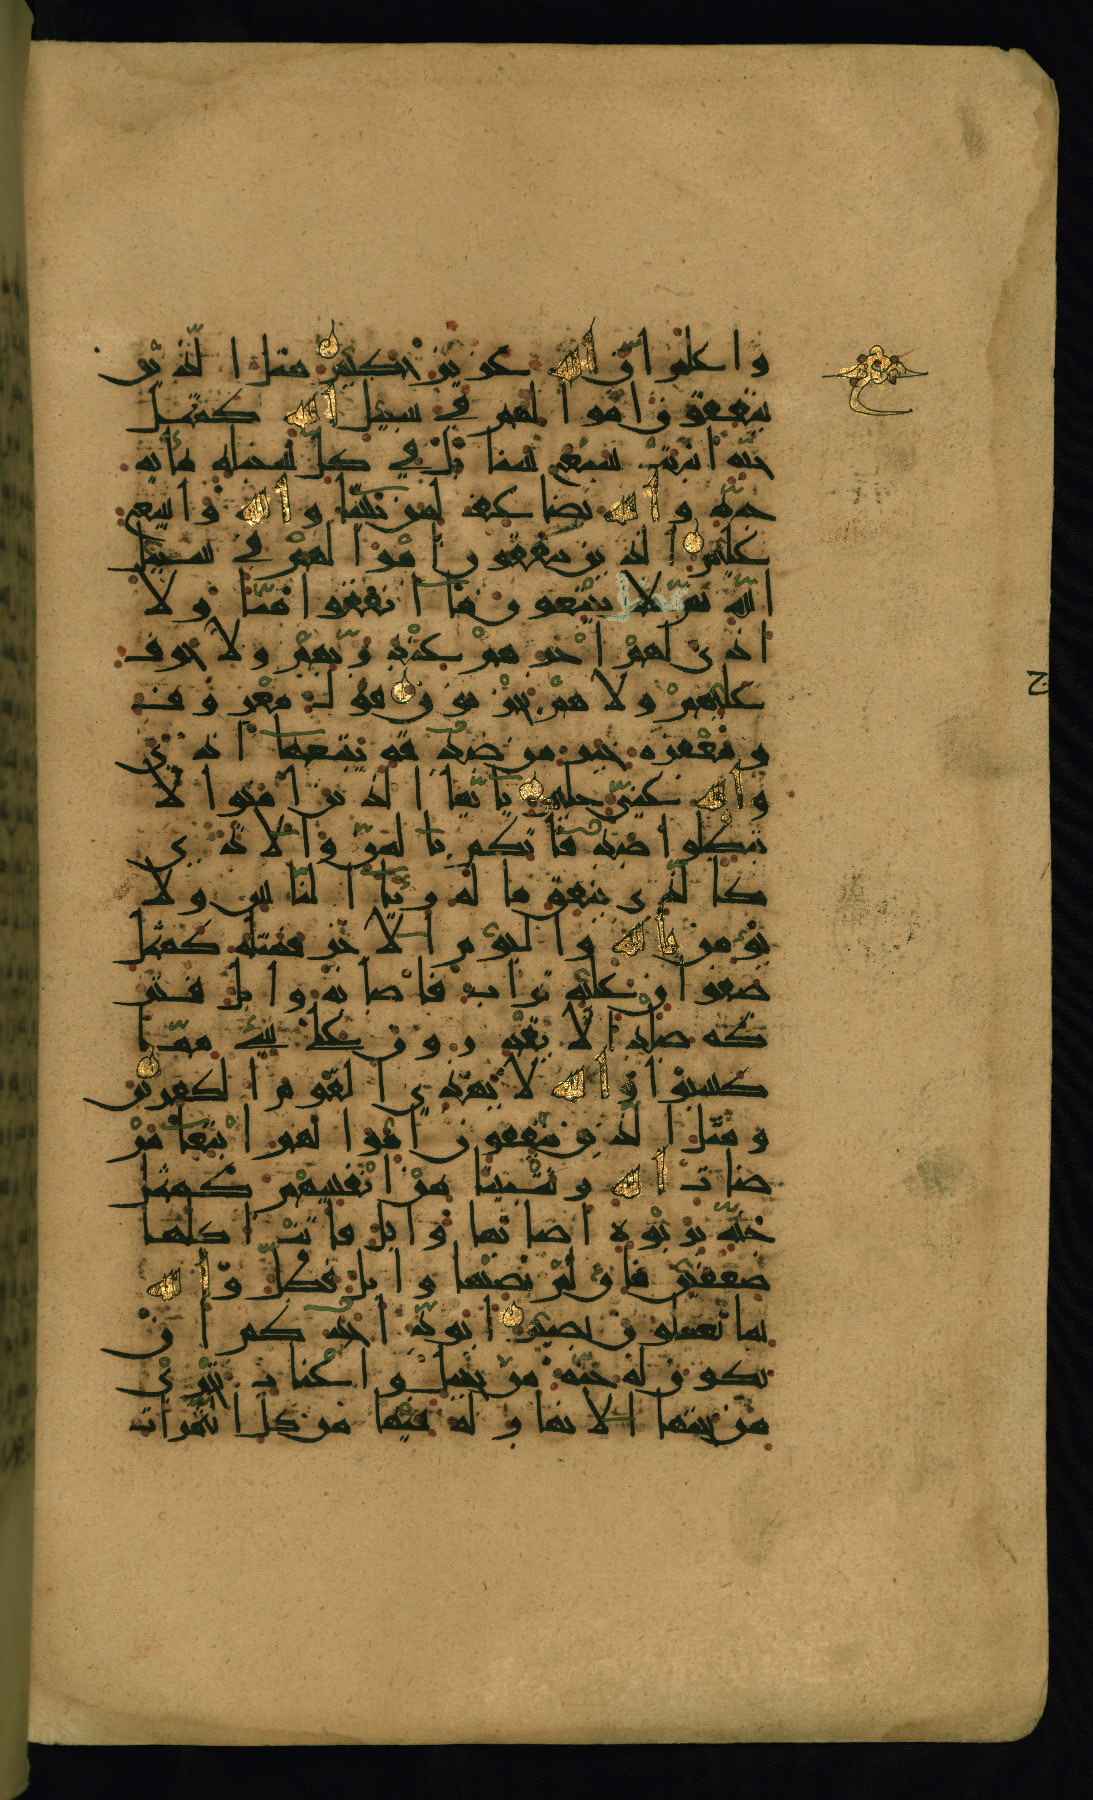 واعلموا ان الله عزيز حكيم مثل الذين
ينفقون اموالهم في سبيل الله كمثل
حبة انبتت سبع سنابل في كل سنبلة مائة
حبة والله يضاعف لمن يشا والله واسع
عليم الذين ينفقون اموالهم في سبيل
الله ثم لا يتبعون ما انفقوا منا ولا
اذى لهم اجرهم عند ربهم ولا خوف
عليهم ولا هم يحزنون قول معروف
ومغفرة خير من صدقة يتبعها اذى
والله غني حليم يايها الذين امنوا لا
تبطلوا صدقاتكم بالمن والاذى
كالذي ينفق ماله رئا الناس ولا
يؤمن بالله واليوم الاخر فمثله كمثل
صفوان عليه تراب فاصابه وابل فتر
كه صلدا لا يقدرون على شيء مما
كسبوا والله لا يهدي القوم الكفرين
ومثل الذين ينفقون اموالهم ابتغا مر
ضات الله وتثبيتا من انفسهم كمثل
جنة بربوة اصابها وابل فاتت اكلها
ضعفين فان لم يصبها وابل فطل والله
بما تعملون بصير ايود احدكم ان
تكون له جنة من نخيل واعناب تجري
من تحتها الانهار له فيها من كل الثمرات
ج